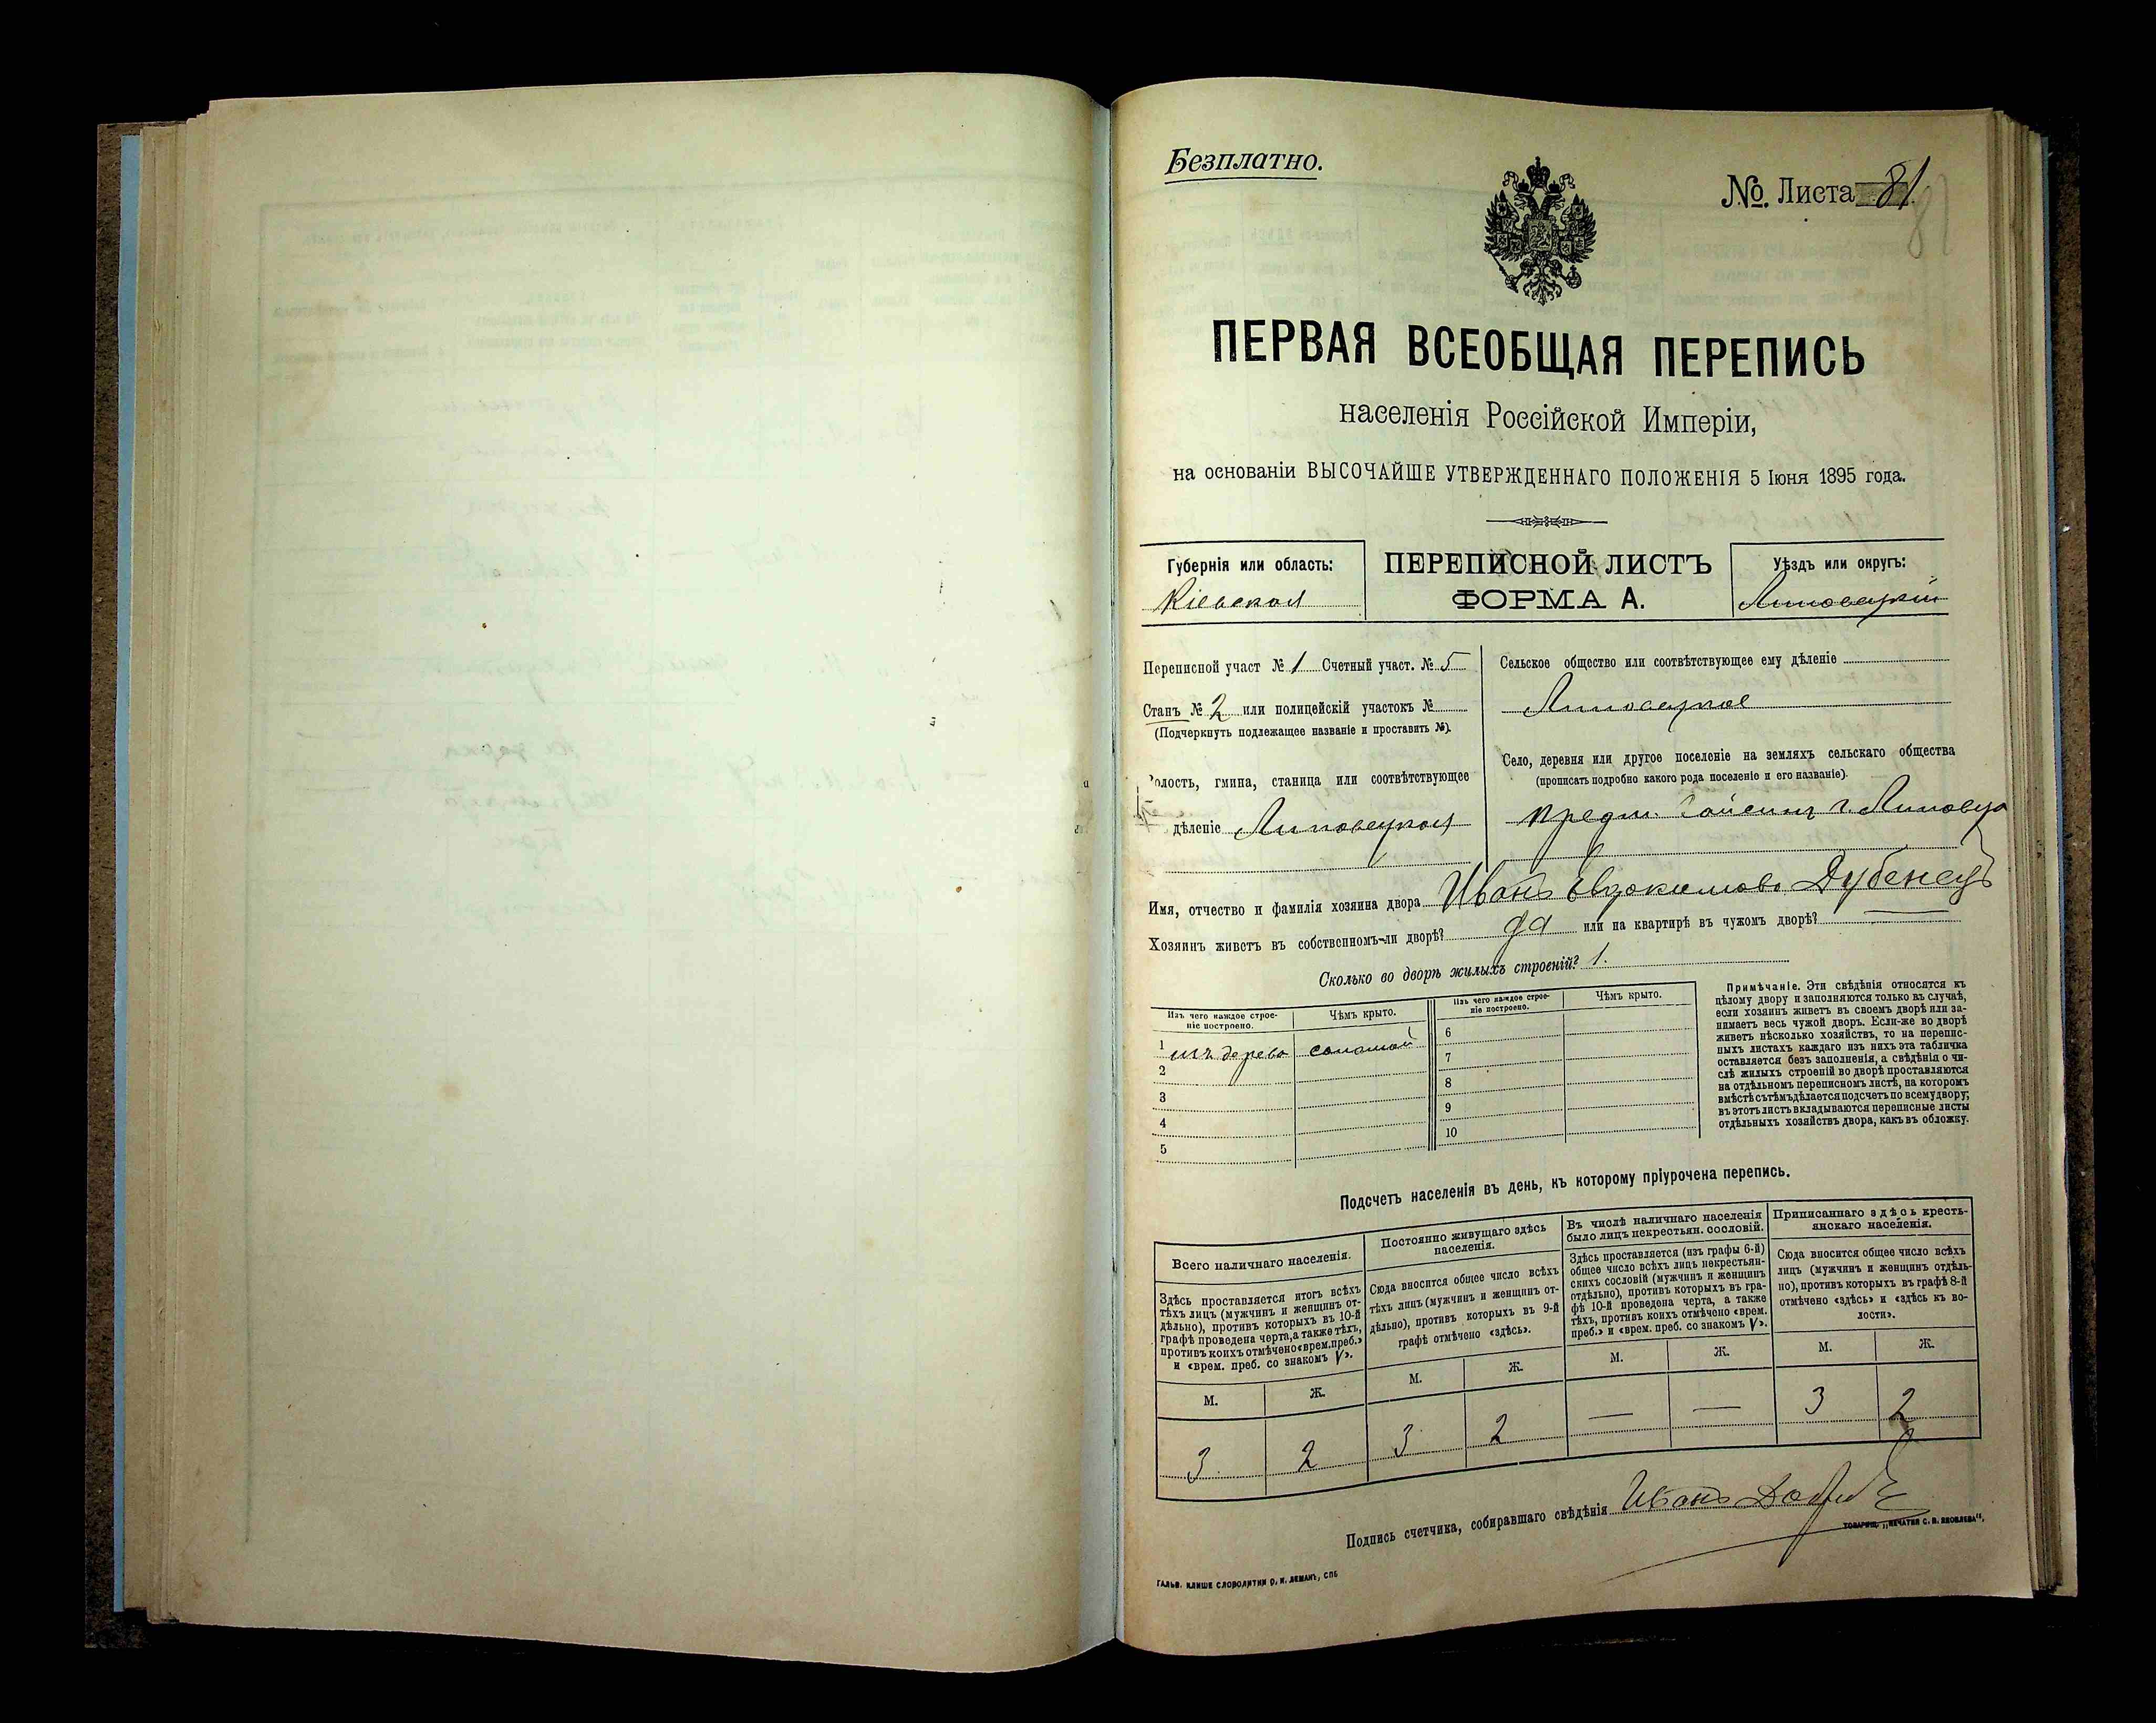 Безплатно.
№. Листа 81
81
ПЕРВАЯ ВСЕОБЩАЯ ПЕРЕПИСЬ
населенія Россійской Имперіи,
на основаніи ВЫСОЧАЙШЕ УТВЕРЖДЕННАГО ПОЛОЖЕНІЯ 5 Іюня 1895 года.
Губернія или область:
Кіевская
ПЕРЕПИСНОЙ ЛИСТЪ
ФОРМА А.
Уѣздъ или округъ:
Липовецкій
Переписной участ № 1 Счетный участ. № 5
Станъ № 2 или полицейскій участокъ №
(Подчеркнуть подлежащее названіе и проставить №).
олость, гмина, станица или соотвѣтствующее
дѣленіе Липовецкая
Сельское общество или соотвѣтствующее ему дѣленіе
Липовецкое
Село, деревня или другое поселеніе на земляхъ сельскаго общества
(прописать подробно какого рода поселеніе и его названіе).
предм. Гайсинъ г. Липовца
Имя, отчество и фамилія хозяина двора Иванъ Евдокимовъ Дубенецъ
Хозяинъ живетъ въ собственномъ-ли дворѣ? да или на квартирѣ въ чужомъ дворѣ? —
Сколько во дворѣ жилыхъ строеній? 1.
Изъ чего каждое строе-
ніе построено.
Чѣмъ крыто.
Изъ чего каждое строе-
ніе построено.
Чѣмъ крыто.
1 изъ дерева соломой
2
3
4
5
6
7
8
9
10
Примѣчаніе. Эти свѣдѣнія относятся къ
цѣлому двору и заполняются только въ случаѣ,
если хозяинъ живетъ въ своемъ дворѣ или за-
нимаетъ весь чужой дворъ. Если-же во дворѣ
живетъ нѣсколько хозяйствъ, то на перепис-
ныхъ листахъ каждаго изъ нихъ эта табличка
оставляется безъ заполненія, а свѣдѣнія о чи-
слѣ жилыхъ строеній во дворѣ проставляются
на отдѣльномъ переписномъ листѣ, на которомъ
вмѣстѣ съ тѣмъ дѣлается подсчетъ по всему двору;
въ этотъ листъ вкладываются переписные листы
отдѣльныхъ хозяйствъ двора, какъ въ обложку.
Подсчетъ населенія въ день, къ которому пріурочена перепись.
Всего наличнаго населенія.
Здѣсь проставляется итогъ всѣхъ
тѣхъ лицъ (мужчинъ и женщинъ от-
дѣльно), противъ которыхъ въ 10-й
графѣ проведена черта, а также тѣхъ,
противъ коихъ отмѣчено «врем. преб.»
и «врем. преб. со знакомъ V».
М. Ж.
3 2
Постоянно живущаго здѣсь
населенія.
Сюда вносится общее число всѣхъ
тѣхъ лицъ (мужчинъ и женщинъ от-
дѣльно), противъ которыхъ въ 9-й
графѣ отмѣчено «здѣсь».
М. Ж.
3 2
Въ числѣ наличнаго населенія
было лицъ некрестьян. сословій.
Здѣсь проставляется (изъ графы 6-й)
общее число всѣхъ лицъ некрестьян-
скихъ сословій (мужчинъ и женщинъ
отдѣльно), противъ которыхъ въ гра-
фѣ 10-й проведена черта, а также
тѣхъ, противъ коихъ отмѣчено «врем.
преб.» и «врем. преб. со знакомъ V».
М. Ж.
— —
Приписаннаго здѣсь кресть-
янскаго населенія.
Сюда вносится общее число всѣхъ
лицъ (мужчинъ и женщинъ отдѣль-
но), противъ которыхъ въ графѣ 8-й
отмѣчено «здѣсь» и «здѣсь къ во-
лости».
М. Ж.
3 2
Подпись счетчика, собиравшаго свѣдѣнія Иванъ
ТОВАРИЩ. „ПЕЧАТНЯ С. П. ЯКОВЛЕВА“.
ГАЛЬВ. КЛИШЕ СЛОВОЛИТНИ О. И. ЛЕМАНЪ, СПБ